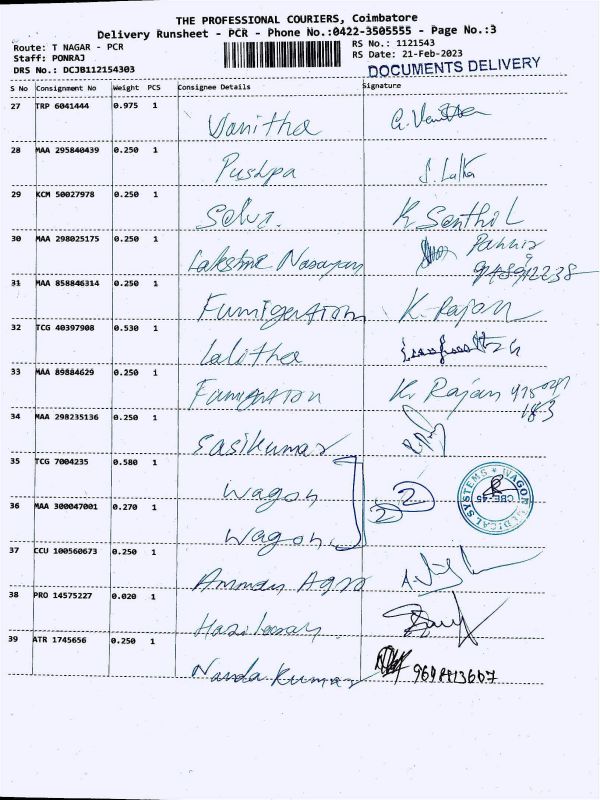 THE PROFESSIONAL COURIERS, Coimbatore
Delivery Runsheet - PCR - Phone No.:0422-3505555 - Page No.:3
Route: T NAGAR - PCR
RS No.: 1121543
Staff: PONRAJ
RS Date: 21-Feb-2023
DRS No.: DCJB112154303
DOCUMENTS DELIVERY
S No Consignment No Weight PCS Consignee Details Signature
27 TRP 6041444 0.975 1
Vanitha G. Vanitha
28 MAA 295840439 0.250 1
Pushpa J. Latha
29 KCM 50027978 0.250 1
Selvi. K Senthil
30 MAA 298025175 0.250 1
Lakshmi Narayan
31 MAA 858846314 0.250 1
Fumigeration K. Rajan
32 TCG 40397908 0.530 1
Lalitha
33 MAA 89884629 0.250 1
Fumigration K. Rajan
34 MAA 298235136 0.250 1
Sasikumar
35 TCG 7004235 0.580 1
Wagon 2
WAGON MEDICAL SYSTEMS * CBE-45
36 MAA 300047001 0.270 1
2
Wagon
37 CCU 100560673 0.250 1
Amman Agro
38 PRO 14575227 0.020 1
39 ATR 1745656 0.250 1
Nanda Kumar